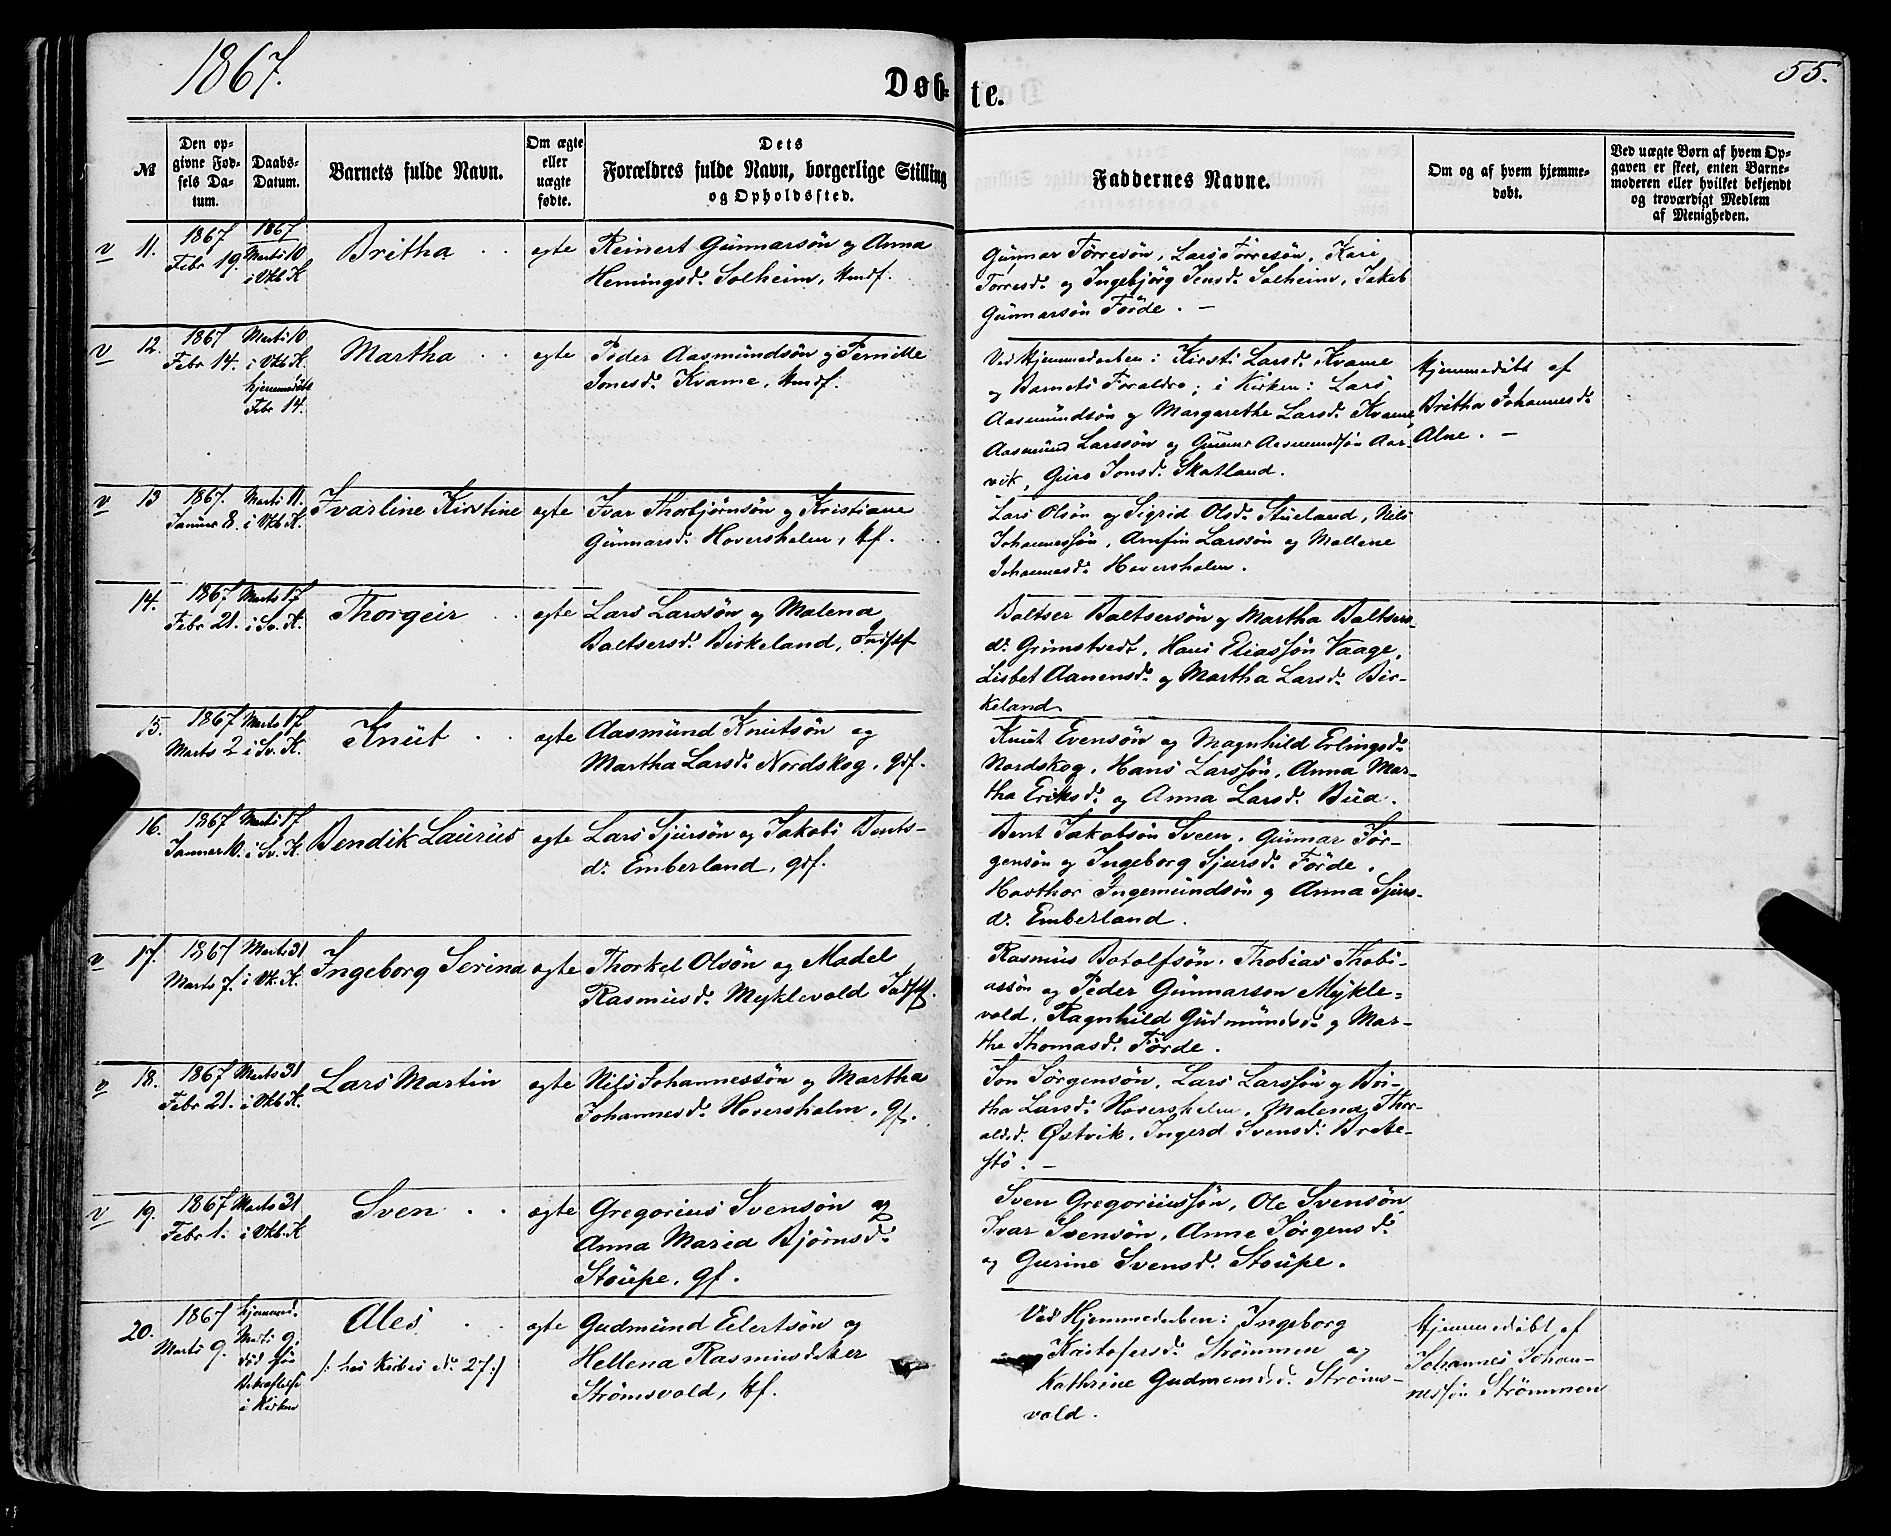 1867.
Døb-
te.
55.
№
Den op-
givne Fød-
sels Da-
tum.
Daabs-
Datum.
Barnets fulde Navn.
Om ægte
eller
uægte
fødte.
Dets
Forældres fulde Navn, borgerlige Stilling
og Opholdssted.
Faddernes Navne.
Om og af hvem hjemme-
døbt.
Ved uægte Børn af hvem Op-
gaven er skeet, enten Barne-
moderen eller hvilket bekjendt
og troværdigt Medlem
af Menigheden.
v 11.
1867
Febr 19.
1867
Marts 10
i Vkb K
Britha
egte
Reinert Gunnarsön og Anna
Hemingsd. Solheim,
Gunnar Törresön, Lars Törresön, Kari
Torresd. og Ingebjörg Jensd. Solheim, Jakob
Gunnarsön Förde. —
v 12.
1867
Febr 14.
Marts 10
i Vkb. K.
hjemmedöbt
Febr 14.
Martha
egte
Peder Aasmundsön og Pernille
Jonesd. Kvame,
Ved Hjemmedaaben: Kirsti Larsd. Kvame
og Barnets Forældre; i Kirken: Lars
Aasmundsön og Margarethe Larsd. Kvame,
Aasmund Larssön og Gunnar Aasmundsön Aar-
vik, Guro Jonsd. Skatland.
Hjemmedöbt af
Britha Johannesd.
Alne. —
v 13
1867.
Januar 8.
Marts 11.
i Vkb. K.
Ivarline Kirstine
egte
Ivar Thorbjörnsön og Kristiane
Gunnarsd. Hoversholm,
Lars Olsön og Sigrid Olsd. Stueland, Nils
Johannessön, Arnfin Larssön og Mallene
Johannesd. Hoversholm.
14.
1867
Febr 21.
Marts 17
i Sv. K.
Thorgeir
egte
Lars Larssön og Malena
Baltsersd. Birkeland,
Baltser Baltsersön og Martha Baltsers-
d. Grimstvedt, Hans Eliassön Vaage,
Lisbet Aanensd. og Martha Larsd. Bir-
keland.
15.
1867
Marts 2
Marts 17
i Sv. K.
Knut
egte
Aasmund Knutsön og
Martha Larsd. Nordskog, gdf.
Knut Evensön og Magnhild Erlingsd.
Nordskog, Hans Larssön, Anna Mar-
tha Eriksd. og Anna Larsd. Bua.
16.
1867
Januar 10.
Marts 17.
i Sv. K.
Bendik Laurus
egte
Lars Sjursön og Jakobi Bents-
d. Emberland, gdf.
Bent Jakobsön Sveen, Gunnar Jör-
gensön og Ingeborg Sjursd. Förde,
Havthor Ingemundsön og Anna Sjurs-
d. Emberland.
v 17.
1867
Marts 7.
Marts 31
i Vk. K.
Ingeborg Serina
egte
Thorkel Olsön og Madel
Rasmusd. Myklevold
Rasmus Botolfsön, Thobias Thobi-
assön og Peder Gunnarson Mykle-
vold, Ragnhild Gudmundsd. og Mar-
the Thomasd. Förde.
v 18.
1867
Febr 21.
Marts 31
i Vkb K.
Lars Martin
egte
Nils Johannessön og Martha
Johannesd. Hoversholm, gf.
Jon Jörgensön, Lars Larssön og Bri-
tha Larsd. Hoversholm, Malena Thor-
aldsd. Østvik, Ingerd Svensd. Brekke-
stö. —
v 19.
1867
Febr 1.
Marts 31
i Vkb. K
Sven
egte
Gregorius Svensön og
Anna Maria Björnsd.
Stoupe, gf.
Sven Gregoriussön, Ole Svensön,
Ivar Svensön, Anne Jörgensd.
og Gurine Svensd. Stoupe.
20.
1867
Marts 9.
hjemmed.
Marts 9,
död før
Bekræftelse
i Kirken
Ales
egte
Gudmund Eilertsön og
Hellena Rasmusdatter
Strömsvold,
Ved Hjemmedaaben: Ingeborg
Kristofersd. Strömmen og
Kathrine Gudmundsd. Ströms-
vold.
Hjemmedöbt af
Johannes Johan-
nessön Strömmen